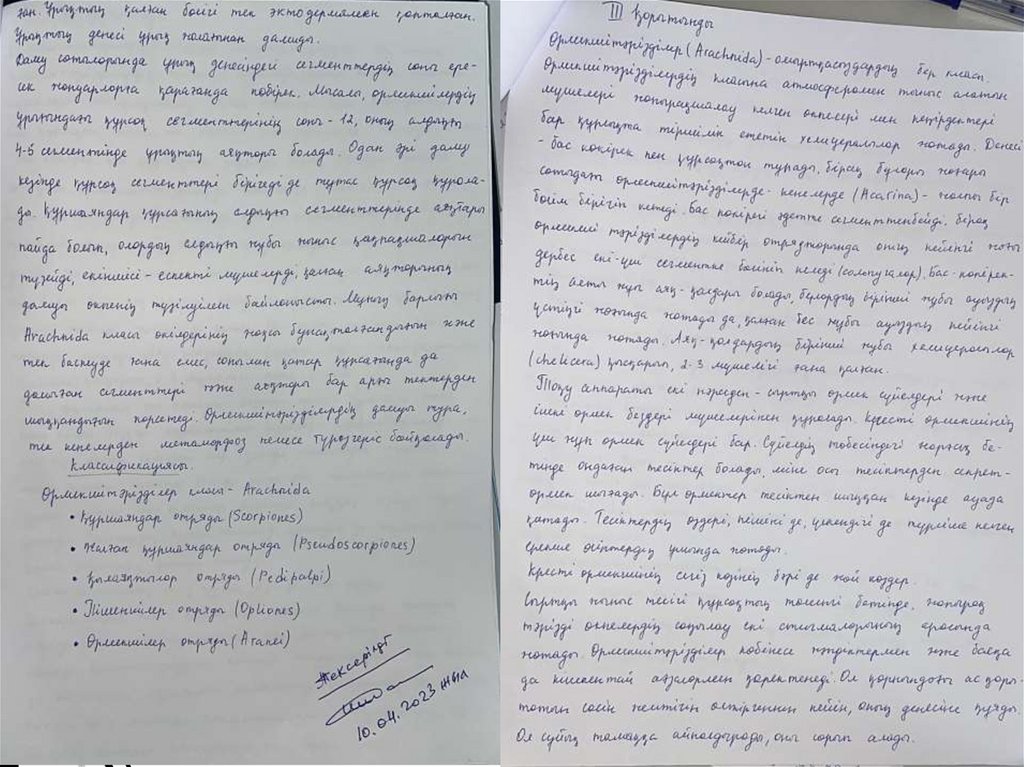 ған. Ұрықтың қалған бөлігі тек эктодермямен қапталған.
Ұрықтың денесі ұрық жолағынан дамиды.
Даму сатыларында ұрық денесіндегі сегменттердің саны ере-
сек жандарларға қарағанда көбірек. Мысалы, өрмекшілердің
ұрығындағы құрсақ сегменттерінің саны - 12, оның алдыңғы
4-5 сегментінде ұрықтың аяқтары болады. Одан әрі даму
кезінде құрсақ сегменттері бірігеді де тұтас құрсақ құрала-
ды. Құршаяндар құрсағының алдыңғы сегменттерінде аяқтары
пайда болып, олардың алдыңғы жұбы жыныс қақпақшаларын
түзейді, екіншісі - ескекті мүшелерді, қалған аяқтарының
дамуы өкпенің түзілуімен байланысты. Мұның барлығы
Arachnida класы өкілдерінің жақсы бунақталғандығын және
тек баскеуде ғана емес, сонымен қатар құрсағында да
дамыған сегменттері және аяқтары бар арғы тектерден
шыққандығын көрсетеді. Өрмекшітәрізділердің дамуы тура,
тек кенелерден метаморфоз немесе түрөзгеріс байқалады.
Классификациясы.
Өрмекшітәрізділер класы - Arachnida
• Құршаяндар отряды (Scorpiones)
• Жалған құршаяндар отряды (Pseudoscorpiones)
• Қылаяқтылар отряды (Pedipalpi)
• Пішеншілер отряды (Opliones)
• Өрмекшілер отряды (Aranei)
Тексерілді
10.04.2023 жыл
III Қорытынды
Өрмекшітәрізділер (Arachnida) - омыртқасыздардың бір класы.
Өрмекшітәрізділердің класына атмосферамен тыныс алатын
мүшелері жапырақшалау келген өкпелері мен кеңірдектері
бар құрлықта тіршілік ететін хелицералылар жатады. Денесі
- бас көкірек пен құрсақтан тұрады, бірақ бұлары жоғары
сатыдағы өрмекшітәрізділерде - кенелерде (Acarina) - жалғы бір
бөлім берігіп кетеді. Бас көкірегі әдетте сегменттенбейді, бірақ
өрмекші тәрізділердің кейбір отрядтарында оның кейінгі жағы
дербес екі-үш сегментке бөлініп келеді (сольпугалар). Бас-көкірек-
тің алты жұп аяқ-қолдары болады, бұлардың бірінші жұбы ауыздың
үстіңгі жағында жатады да, қалған бес жұбы ауыздың кейінгі
жағында жатады. Аяқ-қолдардың бірінші жұбы хелицералылар
(chelicera) қысқарып, 2-3 мүшелігі ғана қалған.
Тоқу аппараты екі нәрседен - сыртқы өрмек сүйелдері және
ішкі өрмек бездері мүшелерінен құралады. Кресті өрмекшінің
үш жұп өрмек сүйелдері бар. Сүйелдің төбесіндегі жарғақ бе-
тінде ондаған тесіктер болады, міне осы тесіктерден секрет-
өрмек шығады. Бұл өрмектер тесіктен шыққан кезінде ауада
қатады. Тесіктердің өздері, пішіні де, үлкендігі де түрліше келген
ерекше өсінтердің ұшында жатады.
Кресті өрмекшінің сегіз көзінің бәрі де жай көздер.
Сыртқы жыныс тесігі құрсақтың төменгі бетінде, жапырақ
тәрізді өкпелердің саңылау екі стигмаларының арасында
жатады. Өрмекшітәрізділер көбінесе жәндіктермен және басқа
да кішкентай аңдармен қоректенеді. Ол қарнындағы ас қоры-
татын сөлін жемтігін өлтіргеннен кейін, оның денесіне құяды.
Ол сұйық тамаққа айналдырады, оны сорып алады.